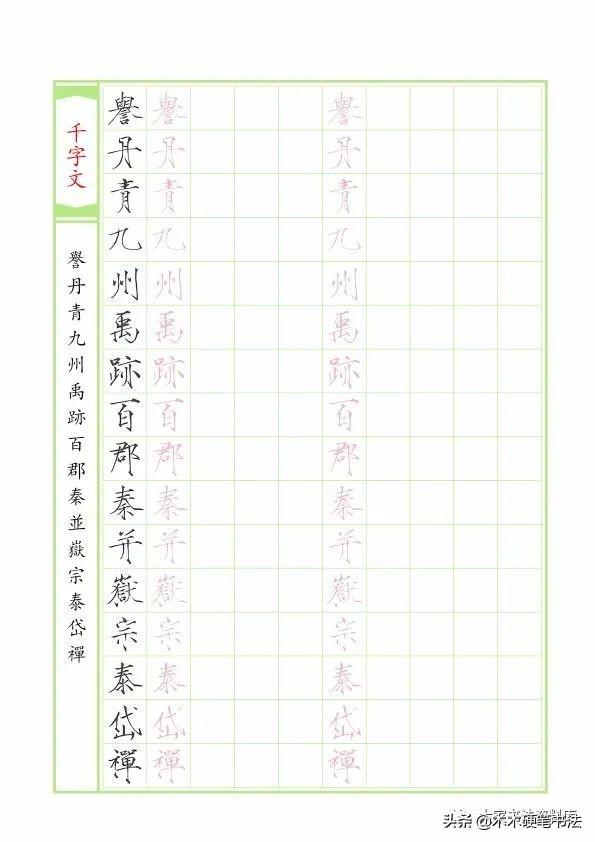 千字文
譽丹青九州禹跡百郡秦並嶽宗泰岱禪
譽丹青九州禹跡百郡秦并嶽宗泰岱禪
譽丹青九州禹跡百郡秦并嶽宗泰岱禪
譽丹青九州禹跡百郡秦并嶽宗泰岱禪
头条 @木木硬笔书法